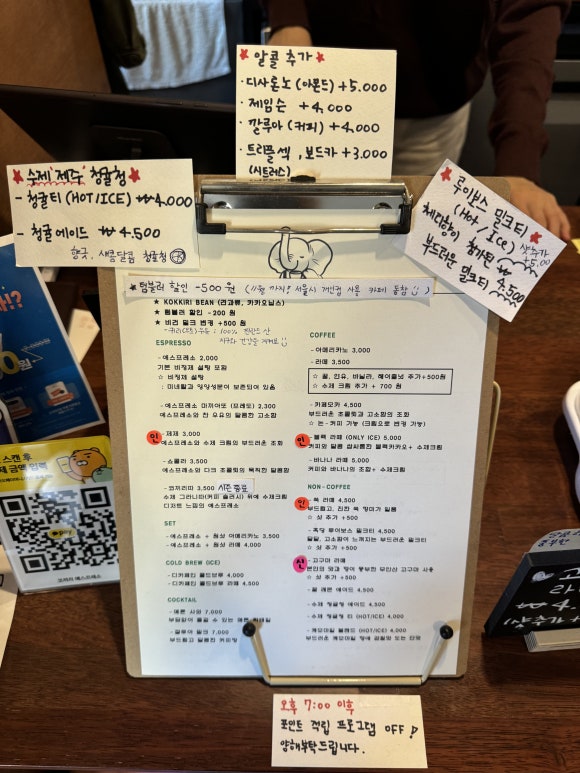 알콜 추가
· 디사론노 (아몬드) +5.000
· 제임슨 +4,000
· 깔루아 (커피) +4,000
· 트리플섹, 보드카 +3.000
(시트러스)
수제 제주 청귤청
- 청귤티 (HOT/ICE) ₩4.000
- 청귤에이드 ₩4.500
향긋, 새콤달콤 청귤청
루이보스 밀크티
(Hot / Ice)
샷추가
체다향이 첨가된
부드러운
밀크티
4,500
★ 텀블러 할인 -500원 (11월 까지! 서울시 개인컵 사용 카페 동참
★ KOKKIRI BEAN (라과뷰, 카카오닙스)
★ 텀블러 할인 -200 원
★ 비건 밀크 변경 +500 원
지구와 건강을 지켜요
ESPRESSO
- 에스프레소 2,000
기본 비정제 설탕 포함
☆ 비정제 설탕
: 미네랄과 영양성분이 보존되어 있음
- 에스프레소 마끼아또 (프레도) 2,300
에스프레소와 찬 우유의 달콤한 고소함
인
- 제제 3,000
에스프레소와 수제 크림의 부드러운 조화
- 쇼콜라 3,500
에스프레소와 다크 초콜릿의 묵직한 달콤함
- 코끼리따 3,500 시즌 종료
수제 그라니따(커피 슬러시) 위에 수제크림
디저트 느낌의 에스프레소
SET
- 에스프레소 + 원샷 아메리카노 3,500
- 에스프레소 + 원샷 라떼 4,000
COLD BREW (ICE)
- 디카페인 콜드브루 4,000
- 디카페인 콜드브루 라떼 4,500
COCKTAIL
- 예른 사워 7,000
- 깔루아 밀크 7,000
부드럽고 달콤한 커피밀
COFFEE
- 아메리카노 3,000
- 라떼 3,500
☆ 꿀, 연유, 바닐라, 헤이즐넛 추가+500원
☆ 수제 크림 추가 + 700 원
- 카페모카 4,500
부드러운 초콜릿과 고소함의 조화
☆ 논-커피 가능 (크림으로 변경 가능)
인
- 블랙 라떼 (ONLY ICE) 5,000
커피와 달콤 쌉싸름한 블랙카카오+ 수제크림
- 바나나 라떼 5,000
커피와 바나나의 조합+ 수제크림
NON-COFFEE
인
- 쑥 라떼 4,500
부드럽고, 진한 쑥 향미가 일품
☆ 샷 추가 +500
- 흑당 루이보스 밀크티 4,500
달달, 고소함이 느껴지는 부드러운 밀크티
☆ 샷 추가 +500
신
- 고구마 라떼
본연의 맛과 향이 풍부한 무안산 고구마 사용
☆ 샷 추가 +500
- 꿀 레몬 에이드 4,500
- 수제 청귤청 에이드 4,500
- 수제 청귤청 티 (HOT/ICE) 4,000
- 캐모마일 블렌드 (HOT/ICE) 4,000
오후 7:00 이후
포인트 적립 프로그램 OFF!
양해부탁드립니다.
스캔 후
pay
코끼리 에스프레소